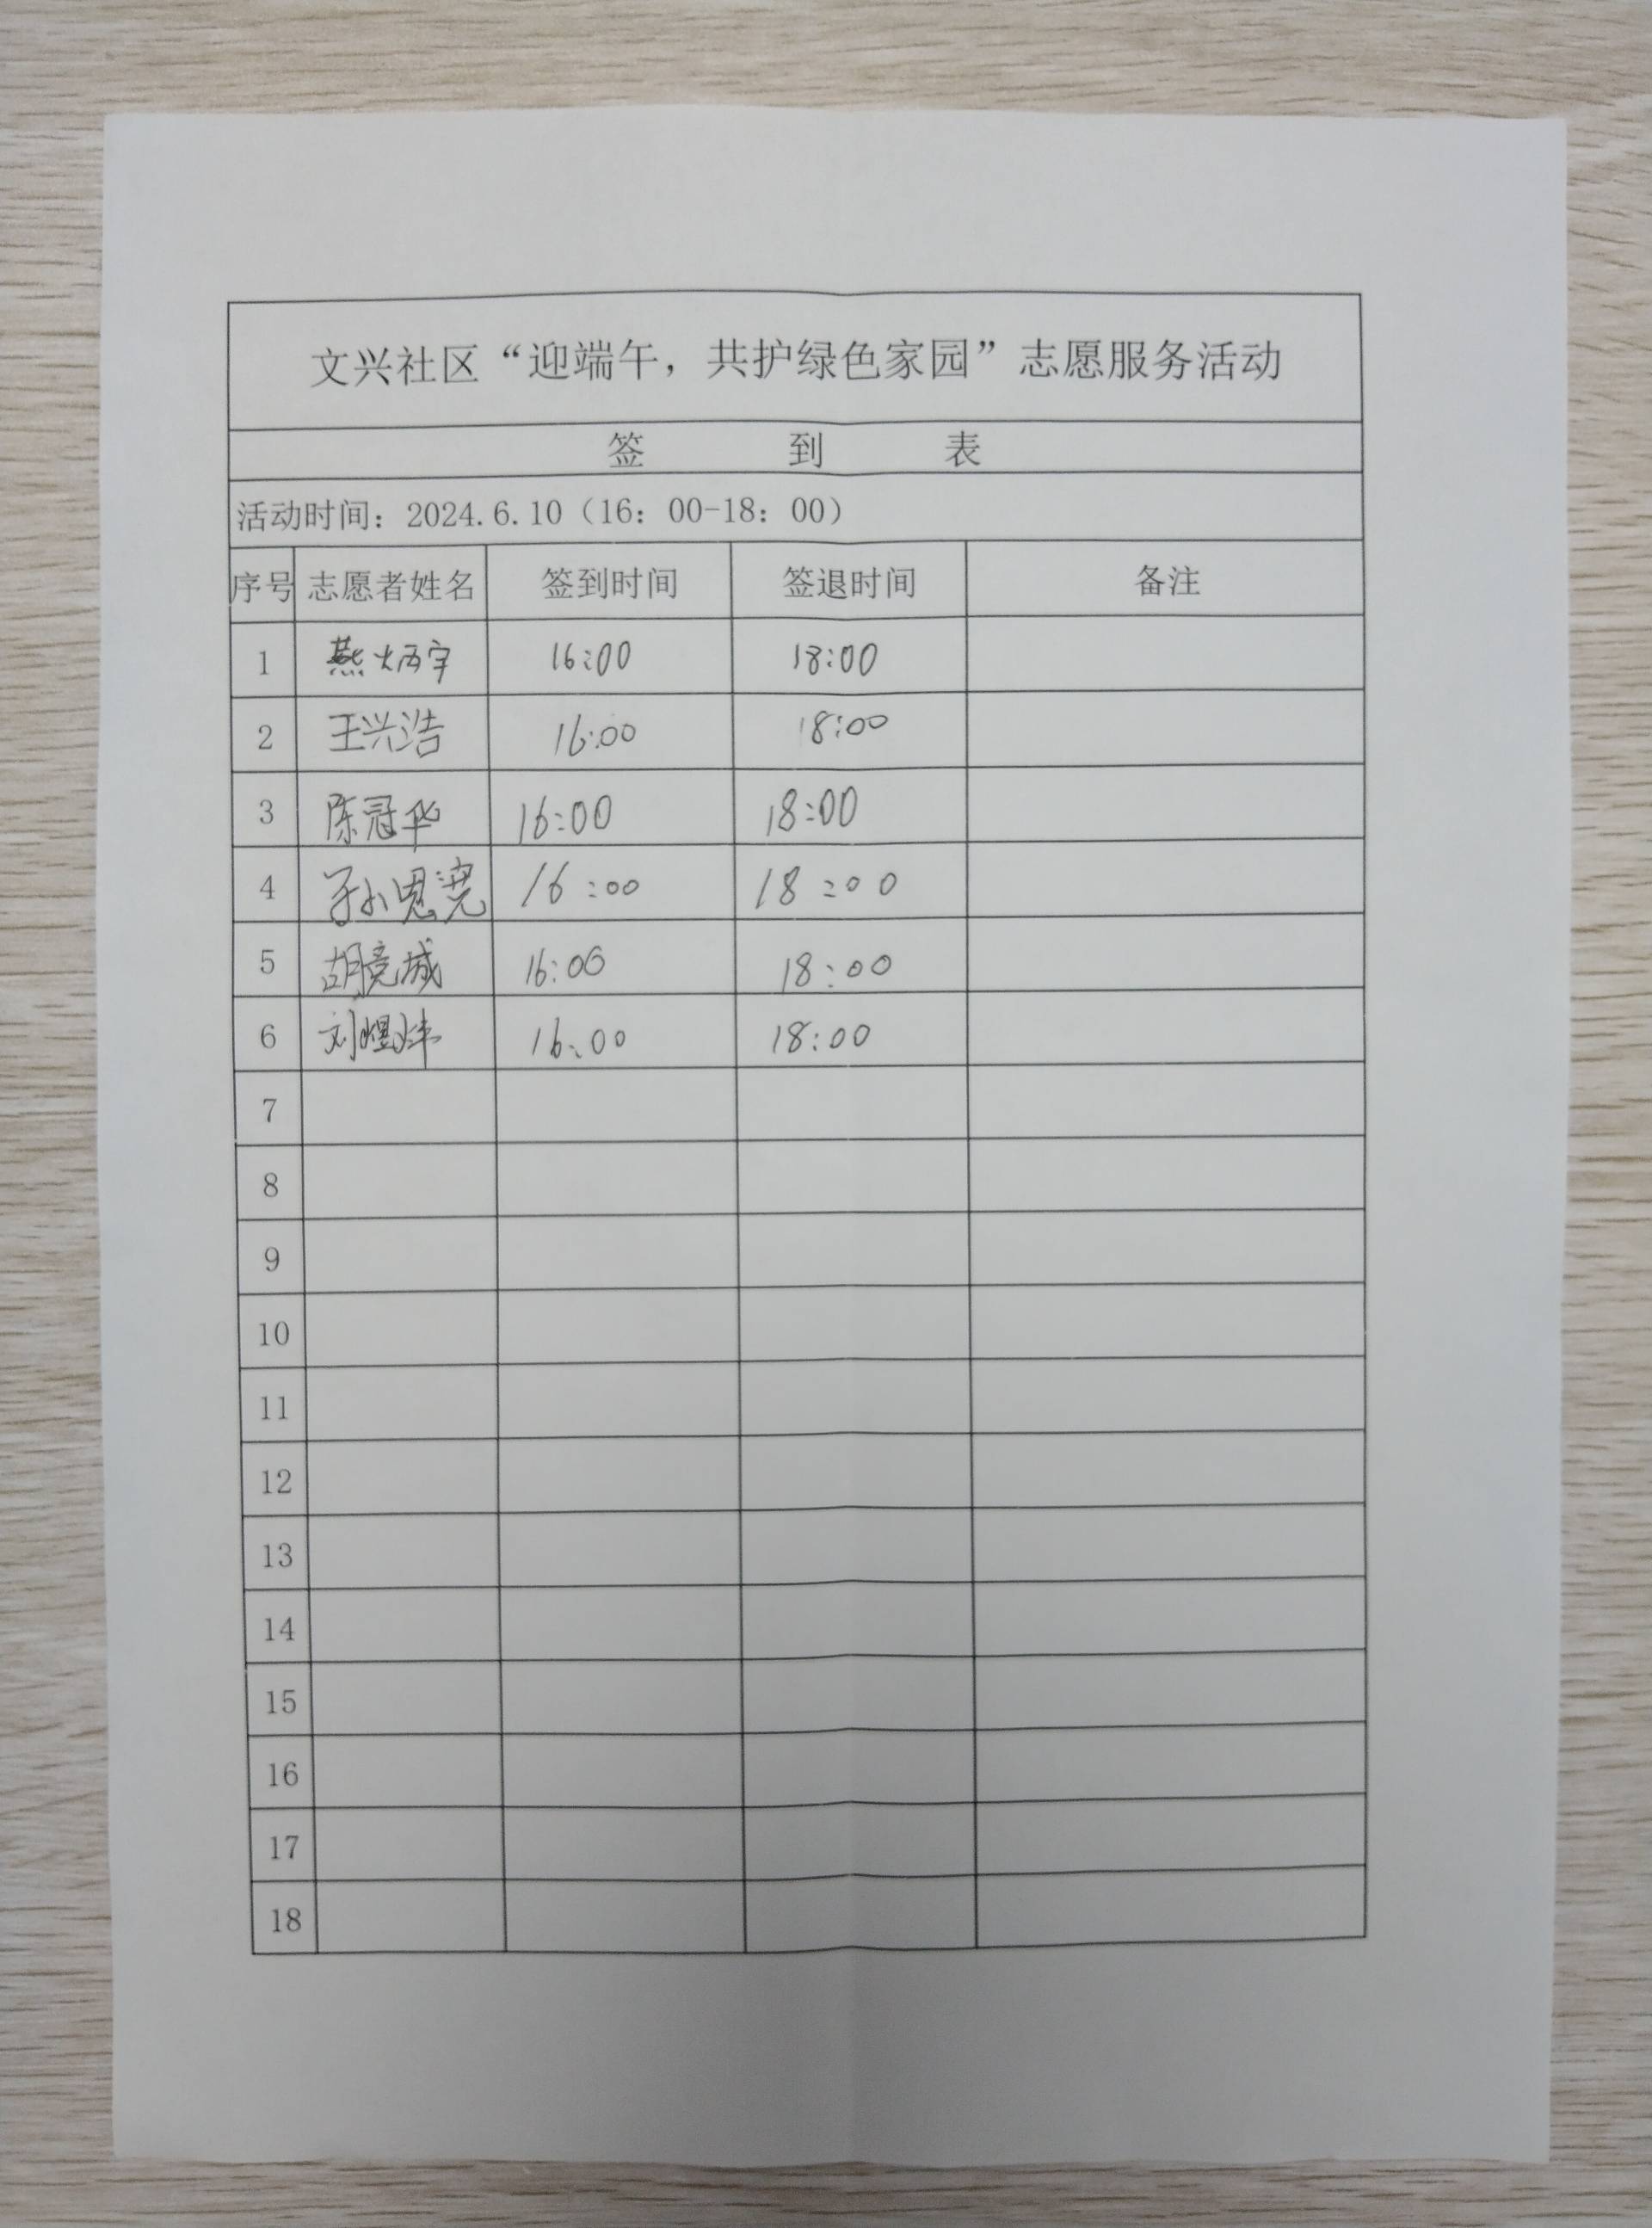 文兴社区“迎端午，共护绿色家园”志愿服务活动
签 到 表
活动时间：2024.6.10（16：00-18：00）
序号 志愿者姓名 签到时间 签退时间 备注
1 燕炳宇 16:00 18:00
2 王兴浩 16:00 18:00
3 陈冠华 16:00 18:00
4 孙恩 16:00 18:00
5 胡竞城 16:00 18:00
6 刘煜炜 16:00 18:00
7
8
9
10
11
12
13
14
15
16
17
18